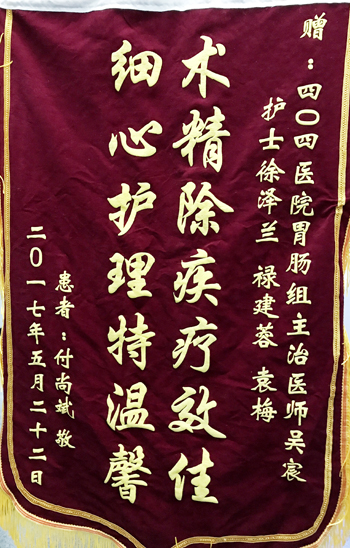 赠：四〇四医院胃肠组主治医师吴宸
护士徐泽兰 禄建蓉 袁梅
术精除疾疗效佳
细心护理特温馨
患者：付尚斌 敬
二〇一七年五月二十二日